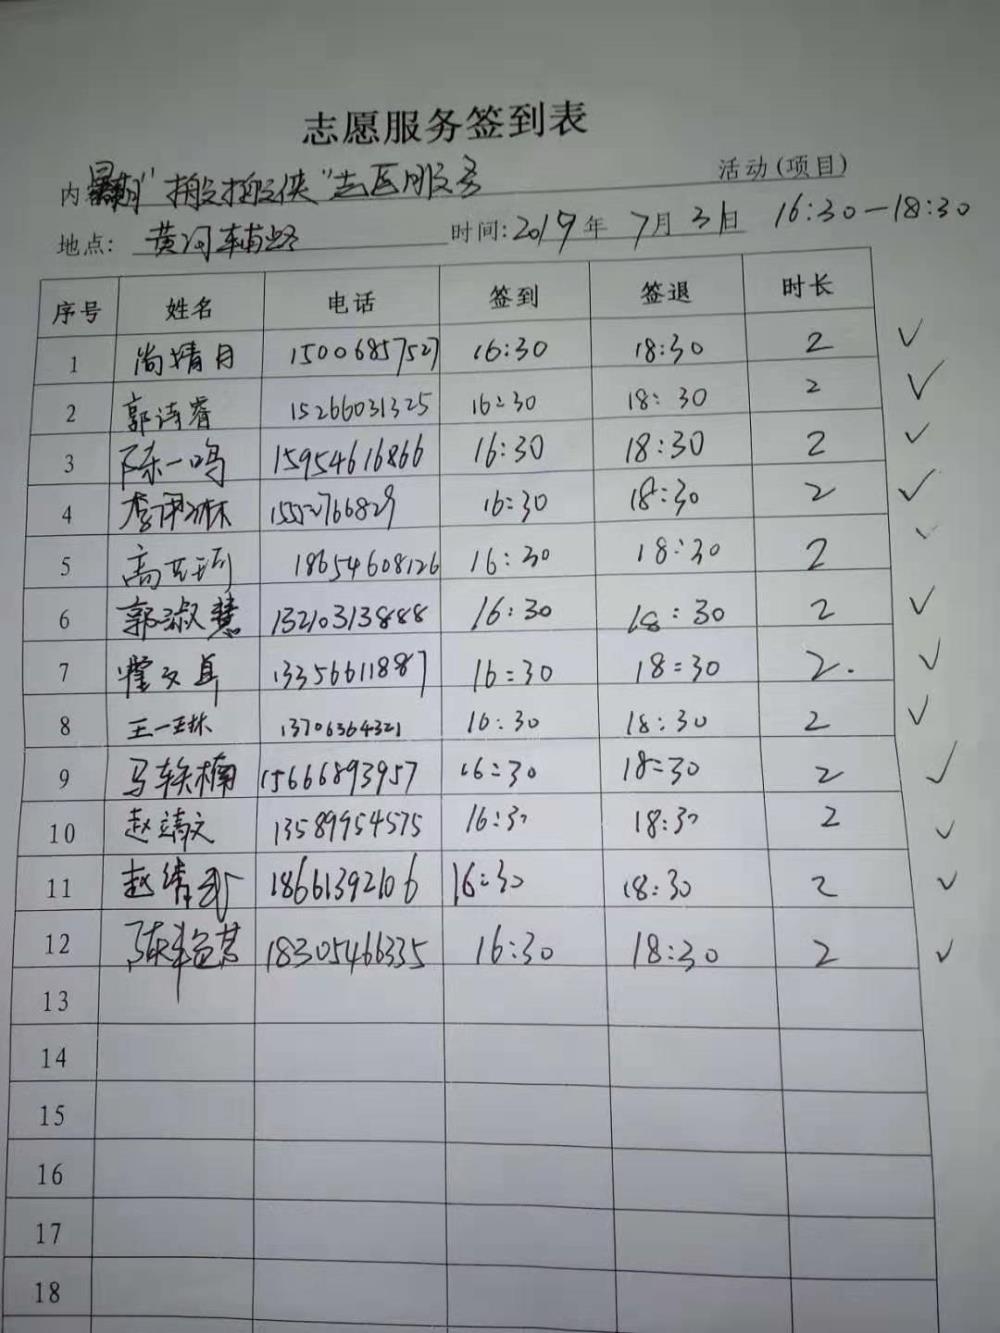 志愿服务签到表
内 "搬搬侠"志愿服务 活动(项目)
地点: 黄河辅路 时间:2019年 7月 31日 16:30-18:30
序号 姓名 电话 签到 签退 时长
1 尚靖月 15006857527 16:30 18:30 2 ✓
2 郭诗睿 15266031325 16:30 18:30 2 ✓
3 陈一鸣 15954616866 16:30 18:30 2 ✓
4 李尹琳 15552766829 16:30 18:30 2 ✓
5 高 18654608126 16:30 18:30 2 ✓
6 郭淑慧 13210313888 16:30 18:30 2 ✓
7 霍文卓 13356611887 16:30 18:30 2. ✓
8 王一琳 13706364321 16:30 18:30 2 ✓
9 马轶楠 15666893957 16:30 18:30 2 ✓
10 赵靖文 13589954575 16:30 18:30 2 ✓
11 赵 18661392106 16:30 18:30 2 ✓
12 陈 18305466335 16:30 18:30 2 ✓
13
14
15
16
17
18